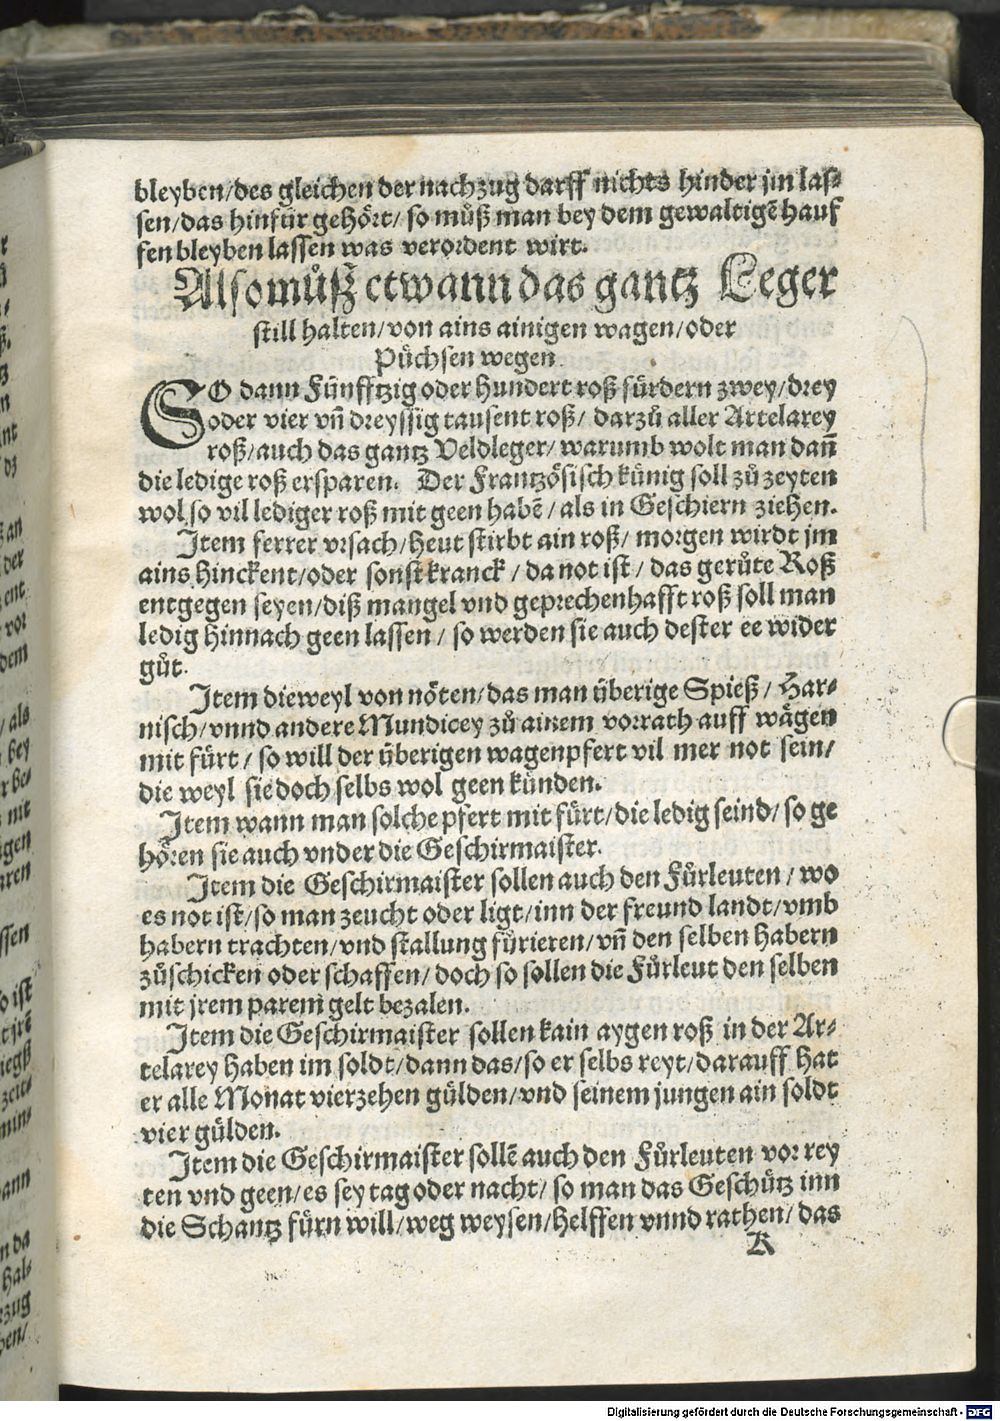 bleyben/des gleichen der nachzug darff nichts hinder jm las⸗
sen/das hinfür gehört/ so můß man bey dem gewaltigē hauf
fen bleyben lassen was verordent wirt.
Also můß etwann das gantz Leger
still halten/von ains ainigen wagen/oder
Püchsen wegen.
SO dann Fünfftzig oder Hundert roß fürdern zwey/drey
oder vier vñ dreyssig tausent roß/ darzů aller Artelarey
roß/auch das gantz Veldleger/ warumb wolt man dañ
die ledige roß ersparen. Der Frantzösisch künig soll zů zeyten
wol so vil lediger roß mit geen habē/als in Geschiern ziehen.
Item ferrer vrsach/heut stirbt ain roß/ morgen wirdt jm
ains hinckent/oder sonst kranck/da not ist/ das gerůte Roß
entgegen seyen/diß mangel vnd geprechenhafft roß soll man
ledig hinnach geen lassen/ so werden sie auch dester ee wider
gůt.
Item dieweyl von nöten/das man überige Spieß/Har⸗
nisch/vnnd andere Mundicey zů ainem vorrath auff wägen
mit fürt/ so will der überigen wagenpfert vil mer not sein/
die weyl sie doch selbs wol geen künden.
Item wann man solche pfert mit fürt/die ledig seind/so ge
hören sie auch vnder die Geschirmaister.
Item die Geschirmaister sollen auch den Fůrleuten/ wo
es not ist/so man zeucht oder ligt/inn der freund landt/vmb
habern trachten/vnd stallung fůrieren/vñ den selben habern
zůschicken oder schaffen/doch so sollen die Fůrleut den selben
mit jrem parem gelt bezalen.
Item die Geschirmaister sollen kain aygen roß in der Ar⸗
telarey haben im soldt/dann das/so er selbs reyt/darauff hat
er alle Monat vierzehen gülden/vnd seinem jungen ain soldt
vier gülden.
Item die Geschirmaister sollē auch den Fůrleuten vor rey
ten vnd geen/es sey tag oder nacht/ so man das Geschütz inn
die Schantz fürn will/weg weysen/helffen vnnd rathen/das
K
an
der
ent
vor
dem
als
bey
nit
ssen
so ist
zeit⸗
ann
n da
hal⸗
Digitalisierung gefördert durch die Deutsche Forschungsgemeinschaft - DFG